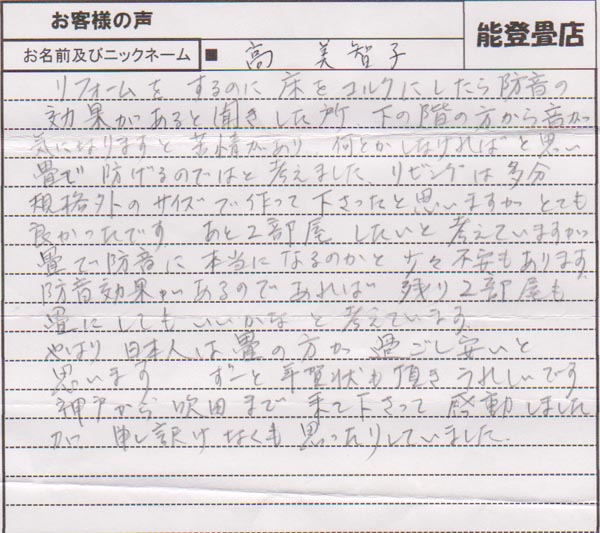 お客様の声
能登畳店
お名前及びニックネーム ■ 高 美智子
リフォームを するのに 床を コルクにしたら防音の
効果があると聞きした所 下の階の方から音が
気になりますと苦情があり 何とかしなければと思い
畳で 防げるのではと考えました、リビングは多分
規格外のサイズで作って下さったと思いますが とても
良かったです あと2部屋 したいと考えていますが
畳で防音に 本当になるのかと少々不安もあります
防音効果があるのであれば 残り2部屋も
畳にしてもいいかなと考えています
やはり 日本人は畳の方が 過ごし安いと
思います ずーと年賀状も頂きうれしいです
神戸から 吹田まで 来て下さって 感動しました
が 申し訳けなくも 思ったりしていました.